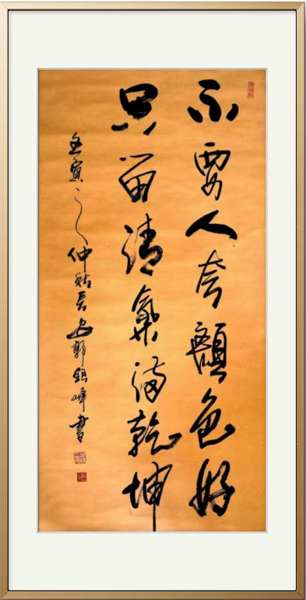 不要人夸颜色好
只留清气满乾坤
壬寅之仲秋长安郭银峰书